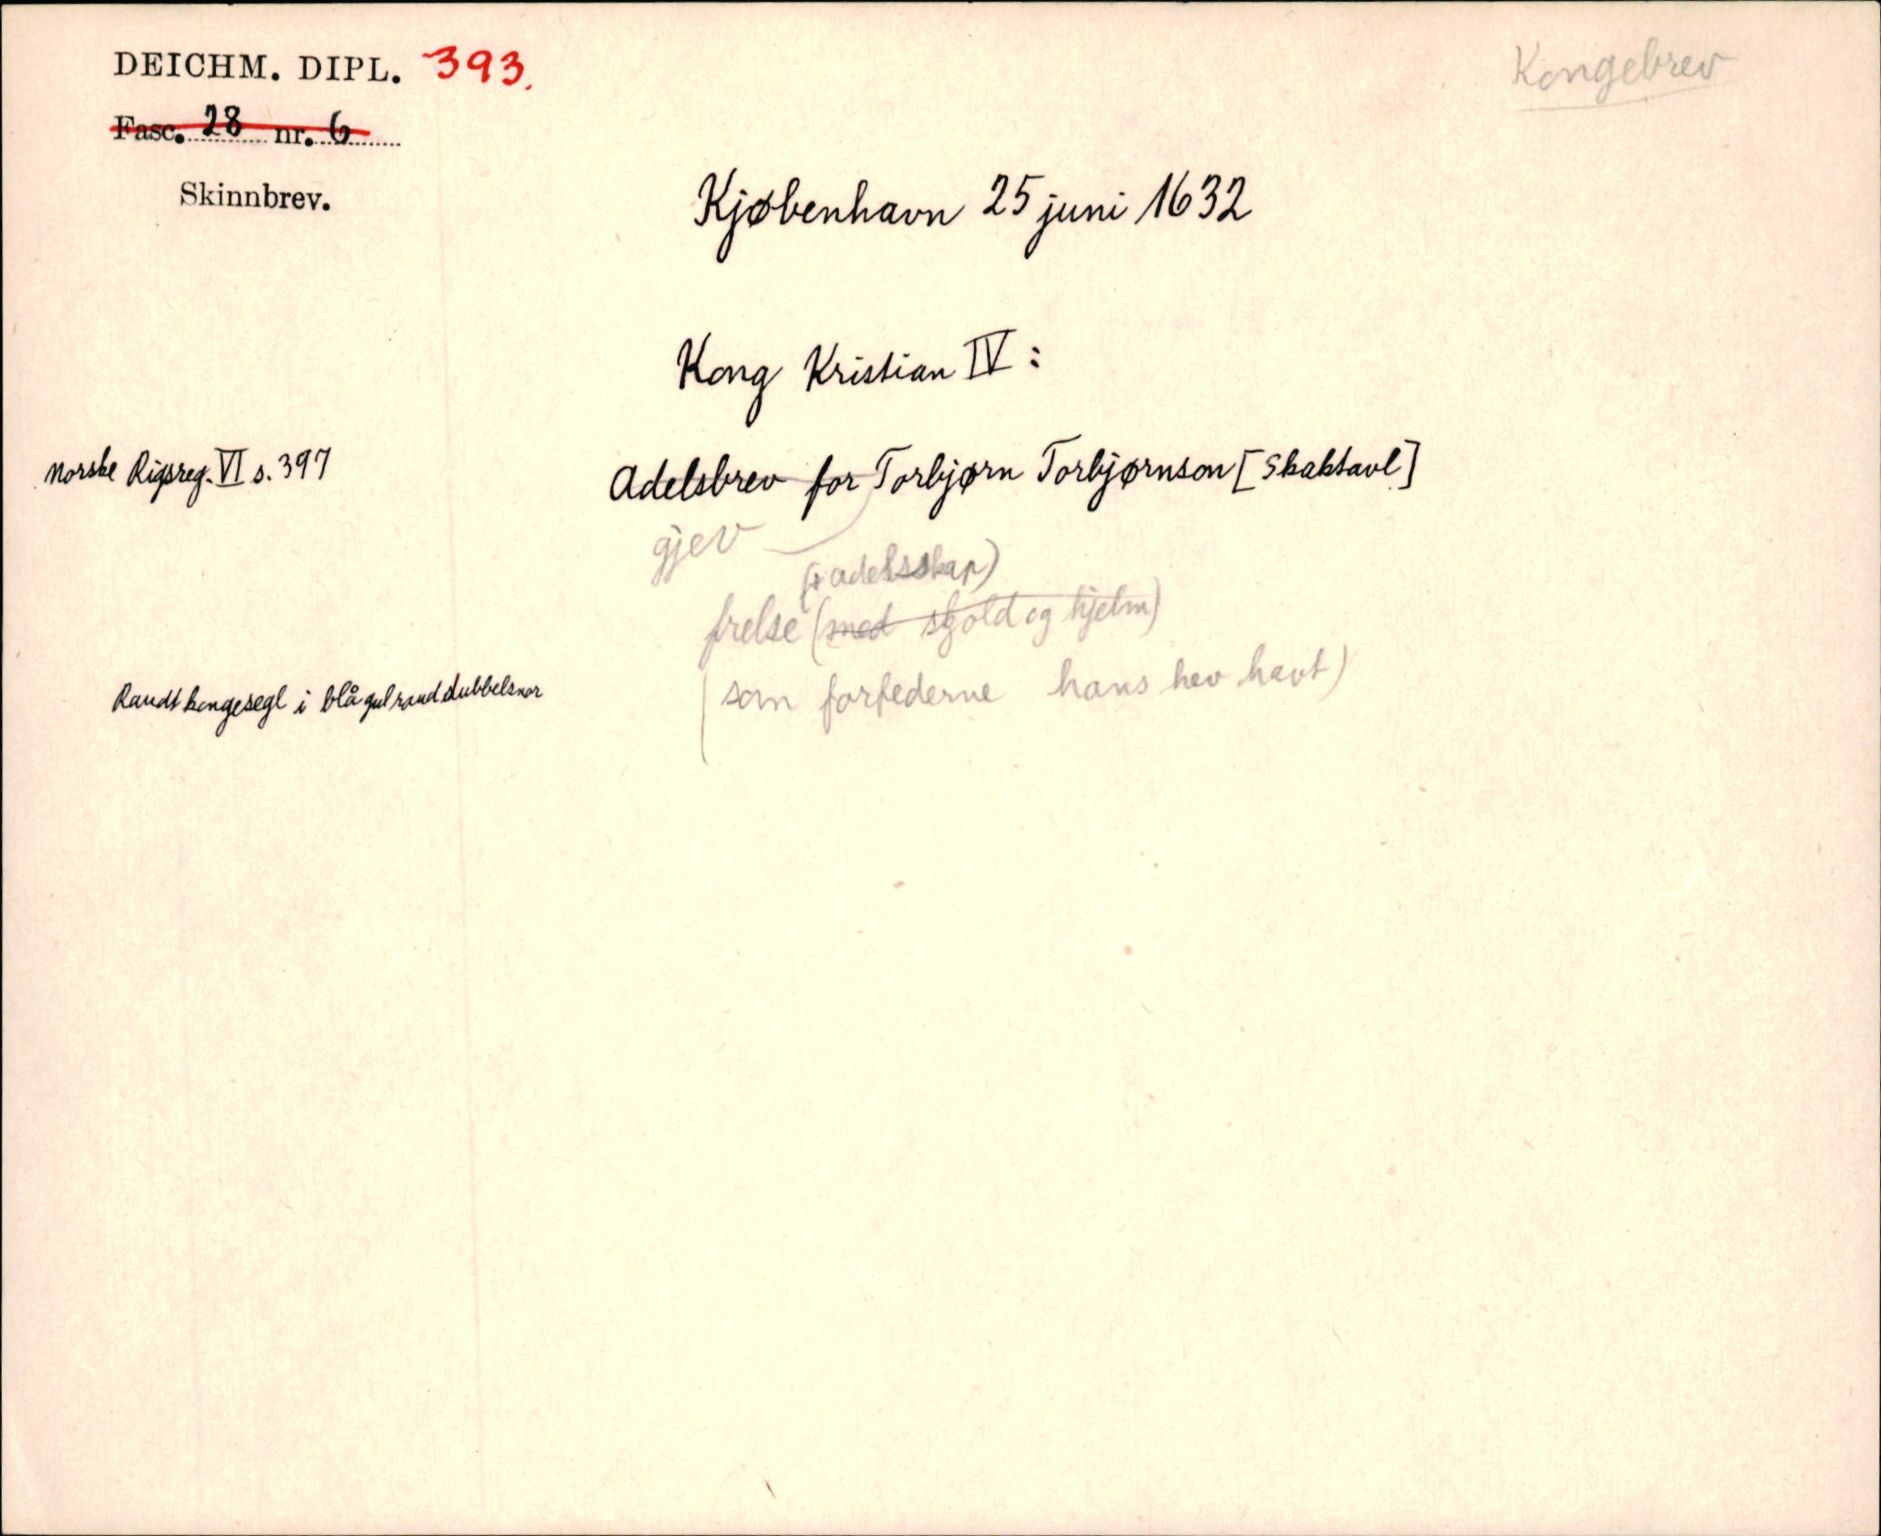 DEICHM. DIPL. 393.
Kongebrev
Fasc. 28 nr. 6
Skinnbrev.
Kjøbenhavn 25 juni 1632
Kong Kristian IV:
Norske Rigsreg. VI s. 397
Adelsbrev for Torbjørn Torbjørnson [Skaktavl]
gjev
adelsskap)
frelse (med skjold og hjelm)
Raudt kongesegl i blågulraud dubbelsnor
(som forfederne hans hev havt)